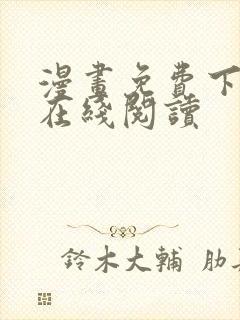 漫畫免費下
在綫閱讀
鈴木大輔 肋